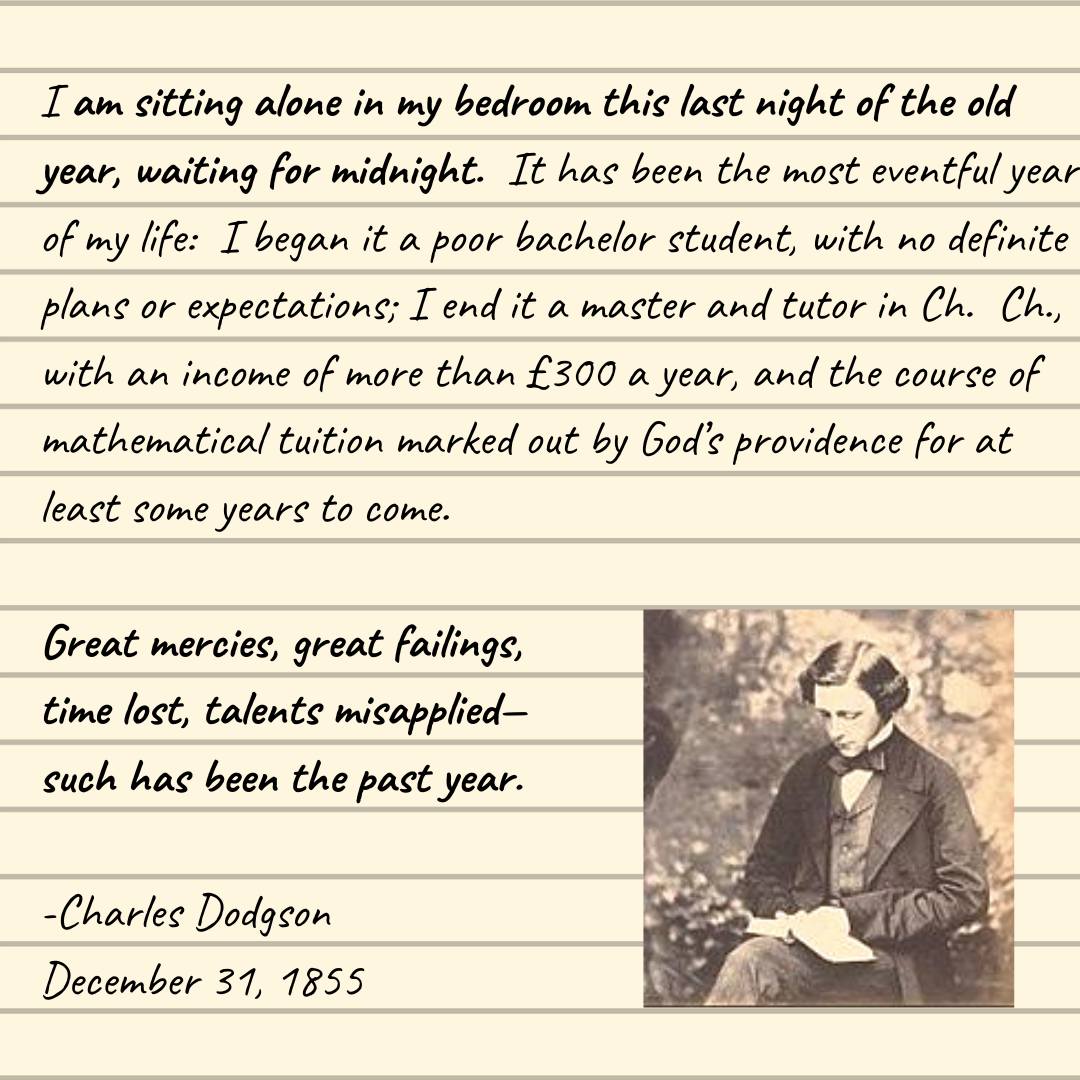 I am sitting alone in my bedroom this last night of the old
year, waiting for midnight. It has been the most eventful year
of my life: I began it a poor bachelor student, with no definite
plans or expectations; I end it a master and tutor in Ch. Ch.,
with an income of more than £300 a year, and the course of
mathematical tuition marked out by God's providence for at
least some years to come.
Great mercies, great failings,
time lost, talents misapplied—
such has been the past year.
-Charles Dodgson
December 31, 1855